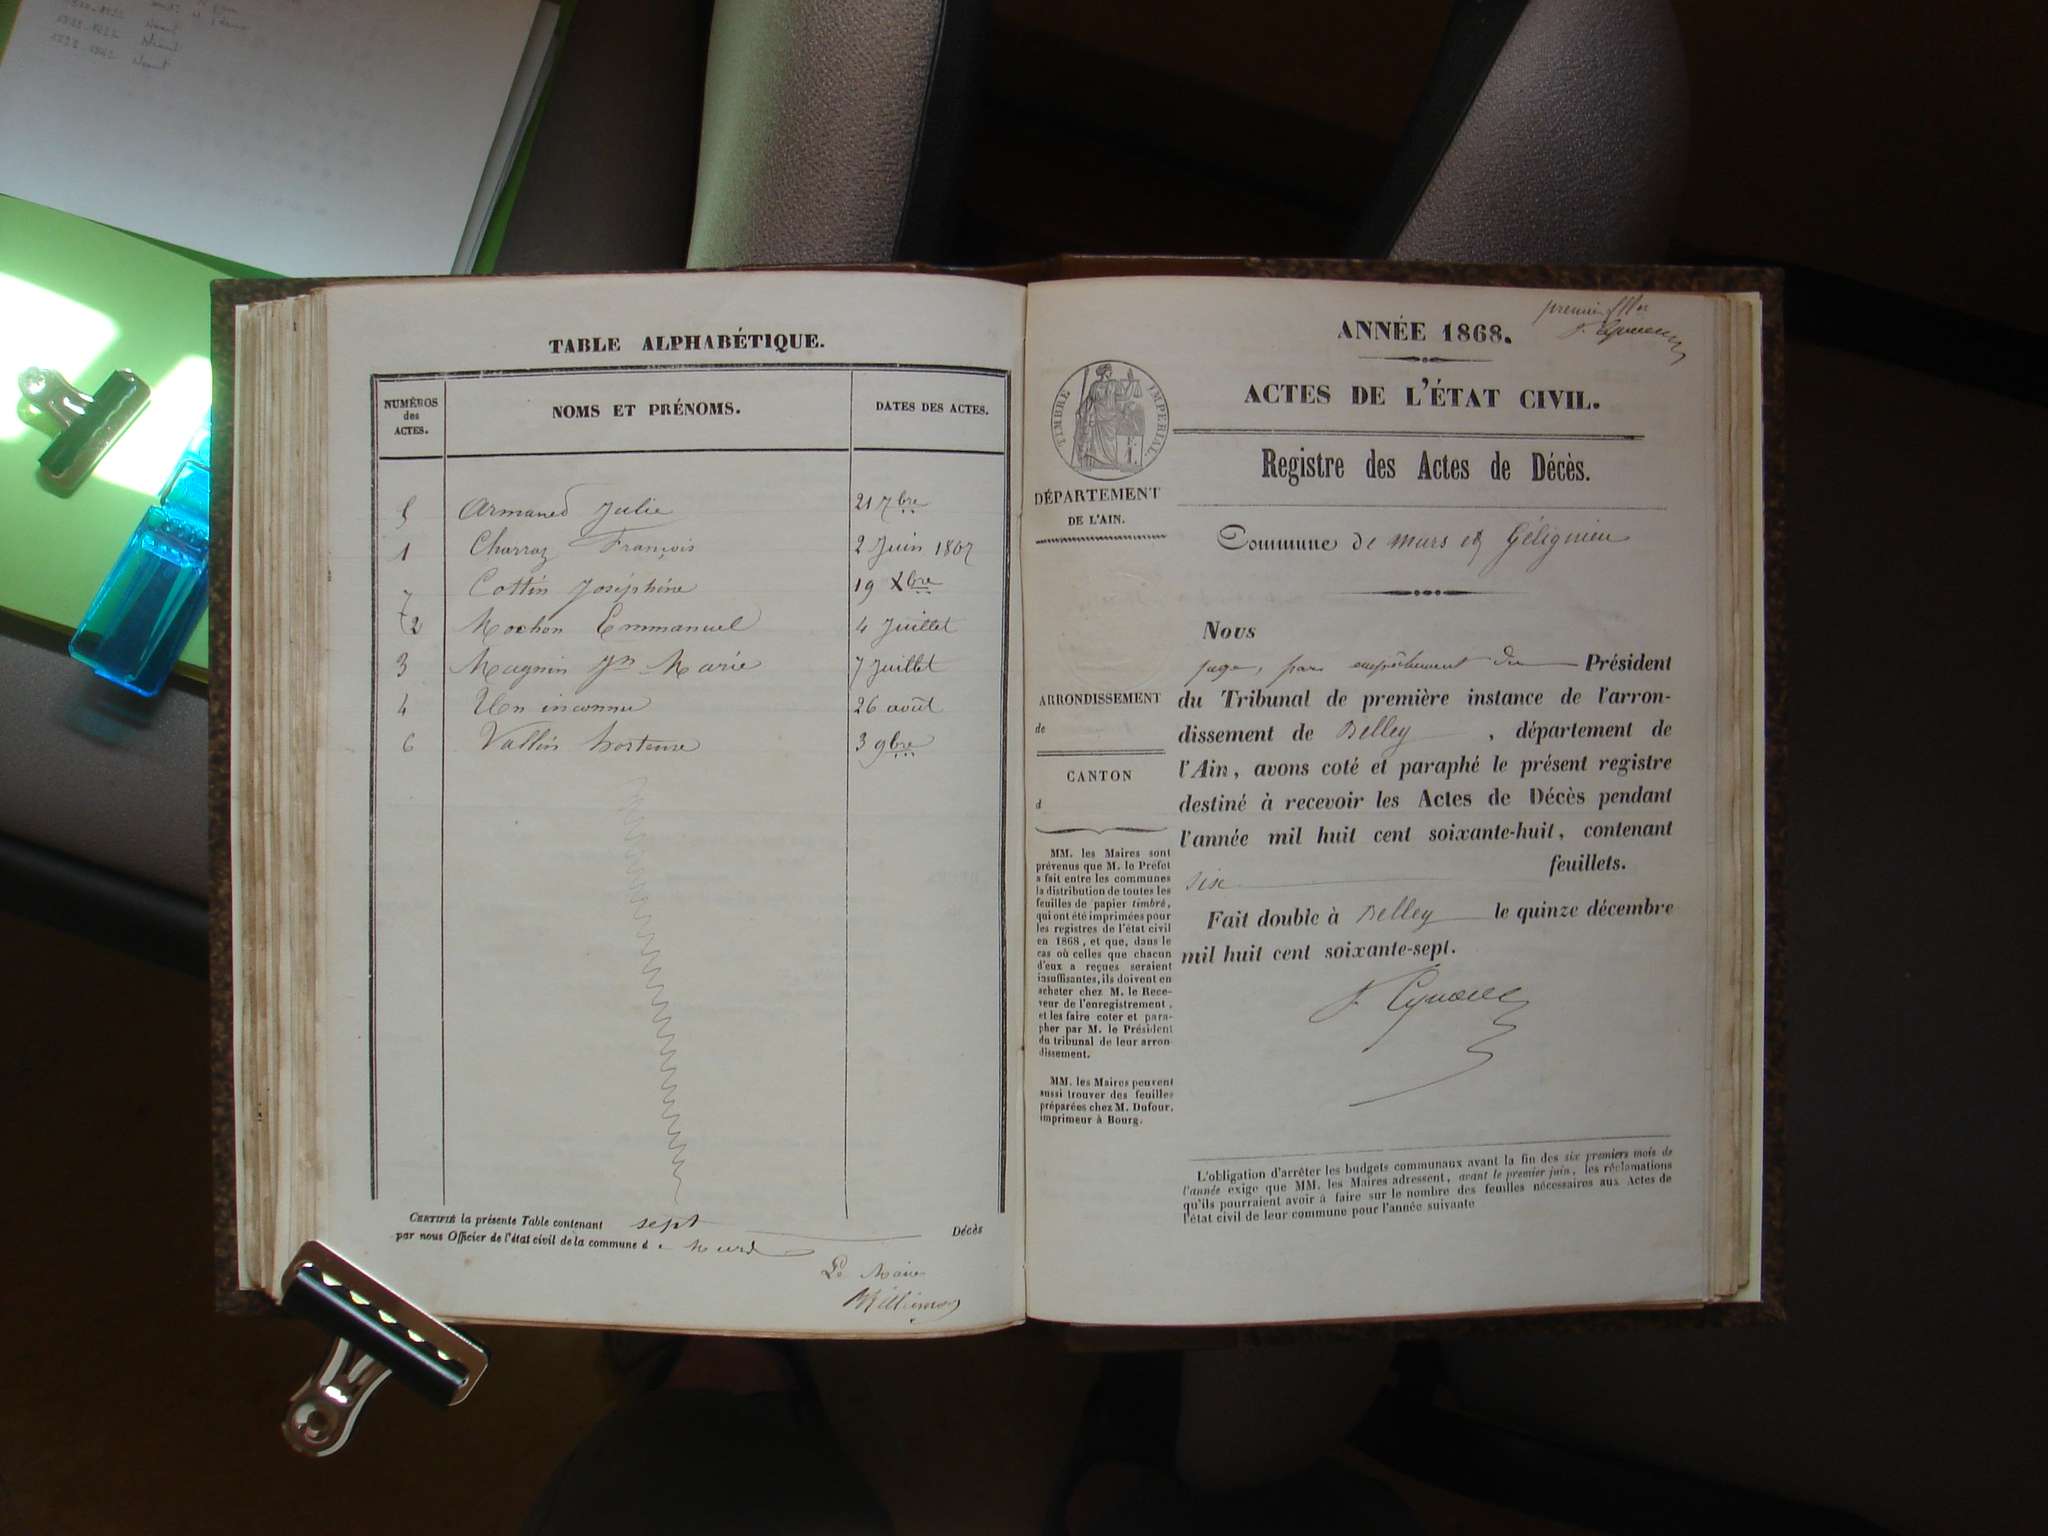 Néant
Néant
Néant
TABLE ALPHABÉTIQUE.
NUMÉROS
des
ACTES.
NOMS ET PRÉNOMS.
DATES DES ACTES.
5 Armand Julie 21 7bre
1 Charraz François 2 Juin 1867
7 Cottin Joséphine 19 Xbre
2 Mochon Emmanuel 4 Juillet
3 Magnin Jn Marie 7 Juillet
4 Un inconnu 26 août
6 Vallin hortense 3 9bre
CERTIFIÉ la présente Table contenant sept Décès
par nous Officier de l'état civil de la commune de Murs
Le Maire
premier
ANNÉE 1868.
ACTES DE L'ÉTAT CIVIL.
TIMBRE IMPÉRIAL.
Registre des Actes de Décès.
DÉPARTEMENT
DE L'AIN.
Commune de murs et Gélignieu
Nous
juge, par empêchement du Président
du Tribunal de première instance de l'arron-
dissement de Belley, département de
l'Ain, avons coté et paraphé le présent registre
destiné à recevoir les Actes de Décès pendant
l'année mil huit cent soixante-huit, contenant
six feuillets.
Fait double à Belley le quinze décembre
mil huit cent soixante-sept.
ARRONDISSEMENT
de
CANTON
d
MM. les Maires sont
prévenus que M. le Préfet
a fait entre les communes
la distribution de toutes les
feuilles de papier timbré,
qui ont été imprimées pour
les registres de l'état civil
en 1868, et que, dans le
cas où celles que chacun
d'eux a reçues seraient
insuffisantes, ils doivent en
acheter chez M. le Rece-
veur de l'enregistrement,
et les faire coter et para-
pher par M. le Président
du tribunal de leur arron-
dissement.
MM. les Maires peuvent
aussi trouver des feuilles
préparées chez M. Dufour,
imprimeur à Bourg.
L'obligation d'arrêter les budgets communaux avant la fin des six premiers mois de
l'année exige que MM. les Maires adressent, avant le premier juin, les réclamations
qu'ils pourraient avoir à faire sur le nombre des feuilles nécessaires aux Actes de
l'état civil de leur commune pour l'année suivante